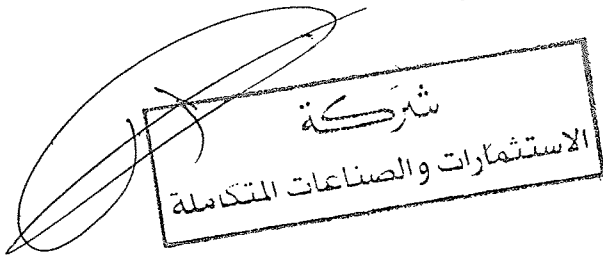 شركة
الاستثمارات والصناعات المتكاملة